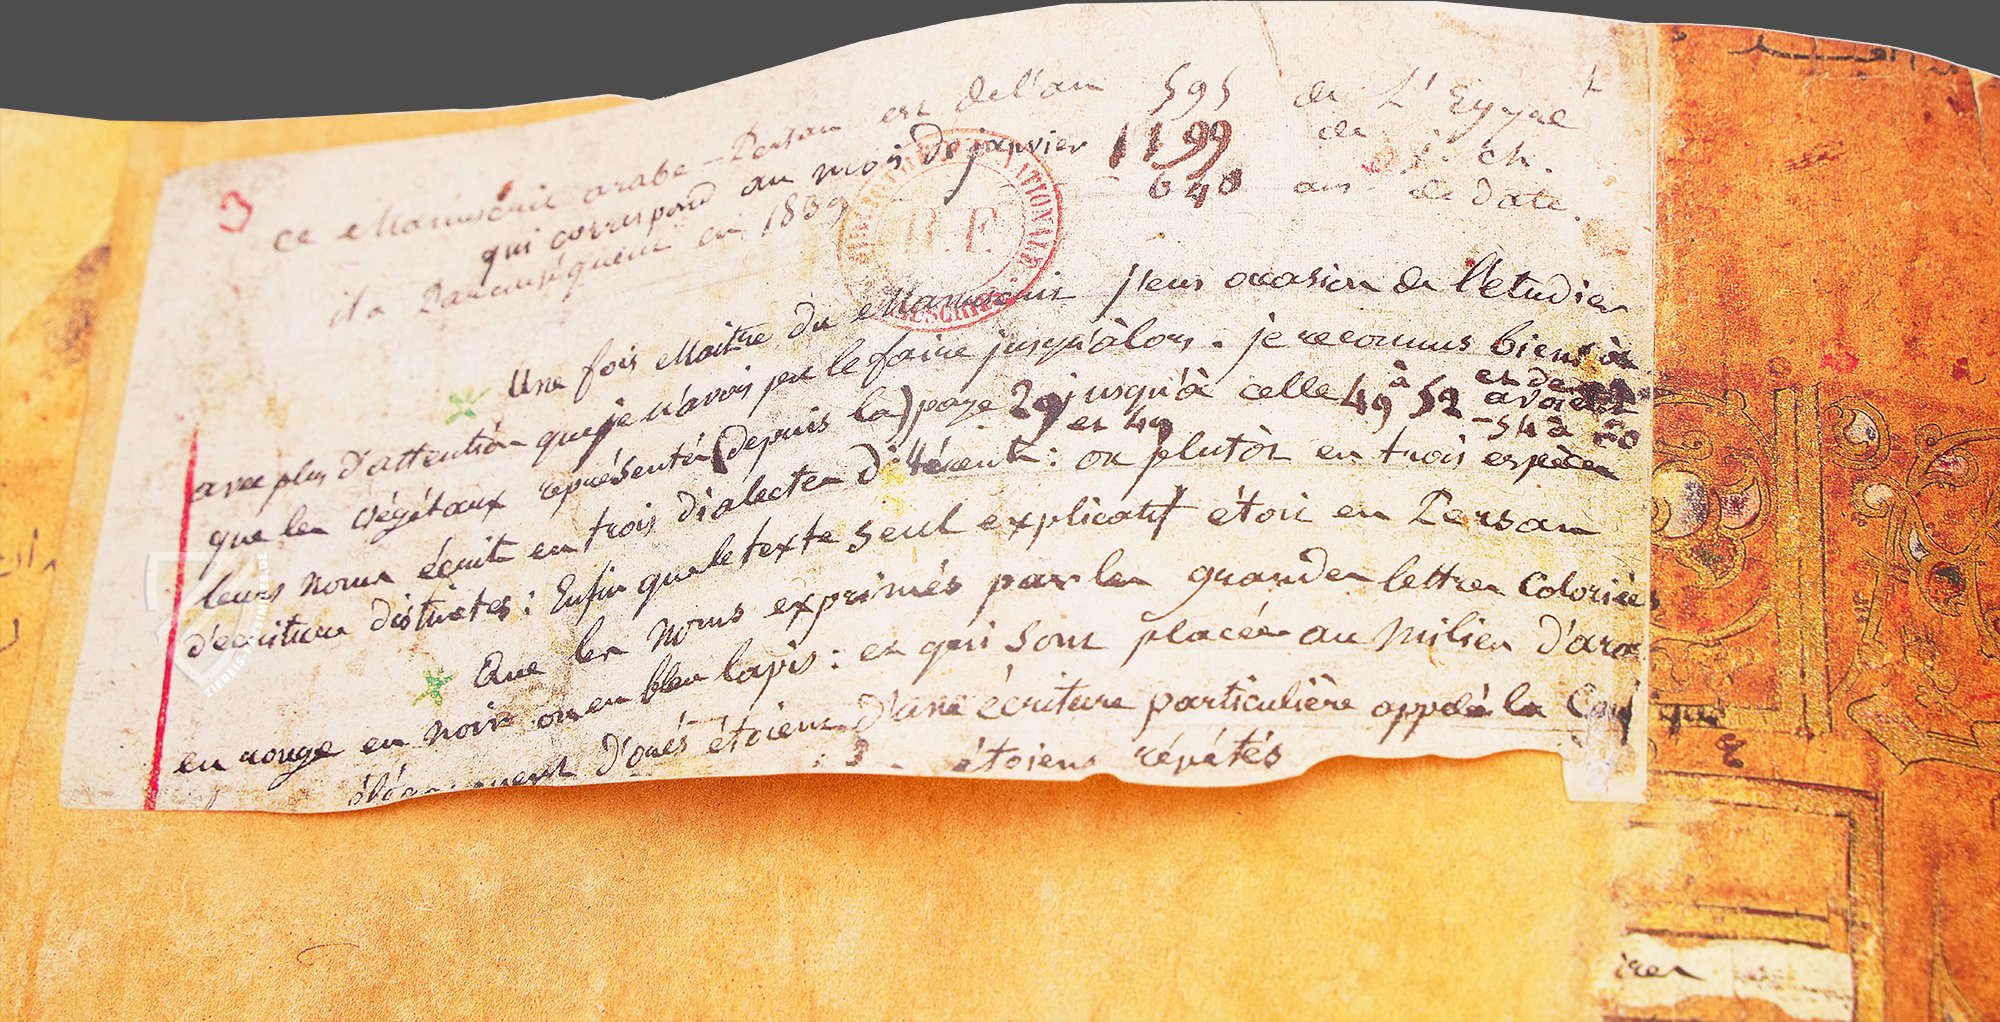 3
ce Manuscrit arabe-Persan est de l'an 595 de L'Egyre
qui correspond au mois de janvier 1199 de J. ch.
il a Par conséquent en 1839 640 ans de date.
Une fois Maitre du Manuscrit j'eus occasion de l'etudier
avec plus d'attention que je n'avois pu le faire jusqu'àlors. je reconnus bientôt
que les végétaux représentés (depuis la) page 29 jusqu'à celle 49 à 52 avoient
et de
et 49 - 54 à
leurs noms écrit en trois dialectes différents: ou plutôt en trois espèces
d'ecriture distinctes: Enfin que le texte seul explicatif étoit en Persan
Que les Noms exprimés par les grandes lettres coloriées
en rouge en noir ou en bleu lapis: et qui sont placées au Milieu d'ara
d'orés étoient d'une écriture particulière appelé la
étoient répétés
BIBLIOTHÈQUE NATIONALE
R.F.
MANUSCRITS
ZIEREIS-FAKSIMILES.DE